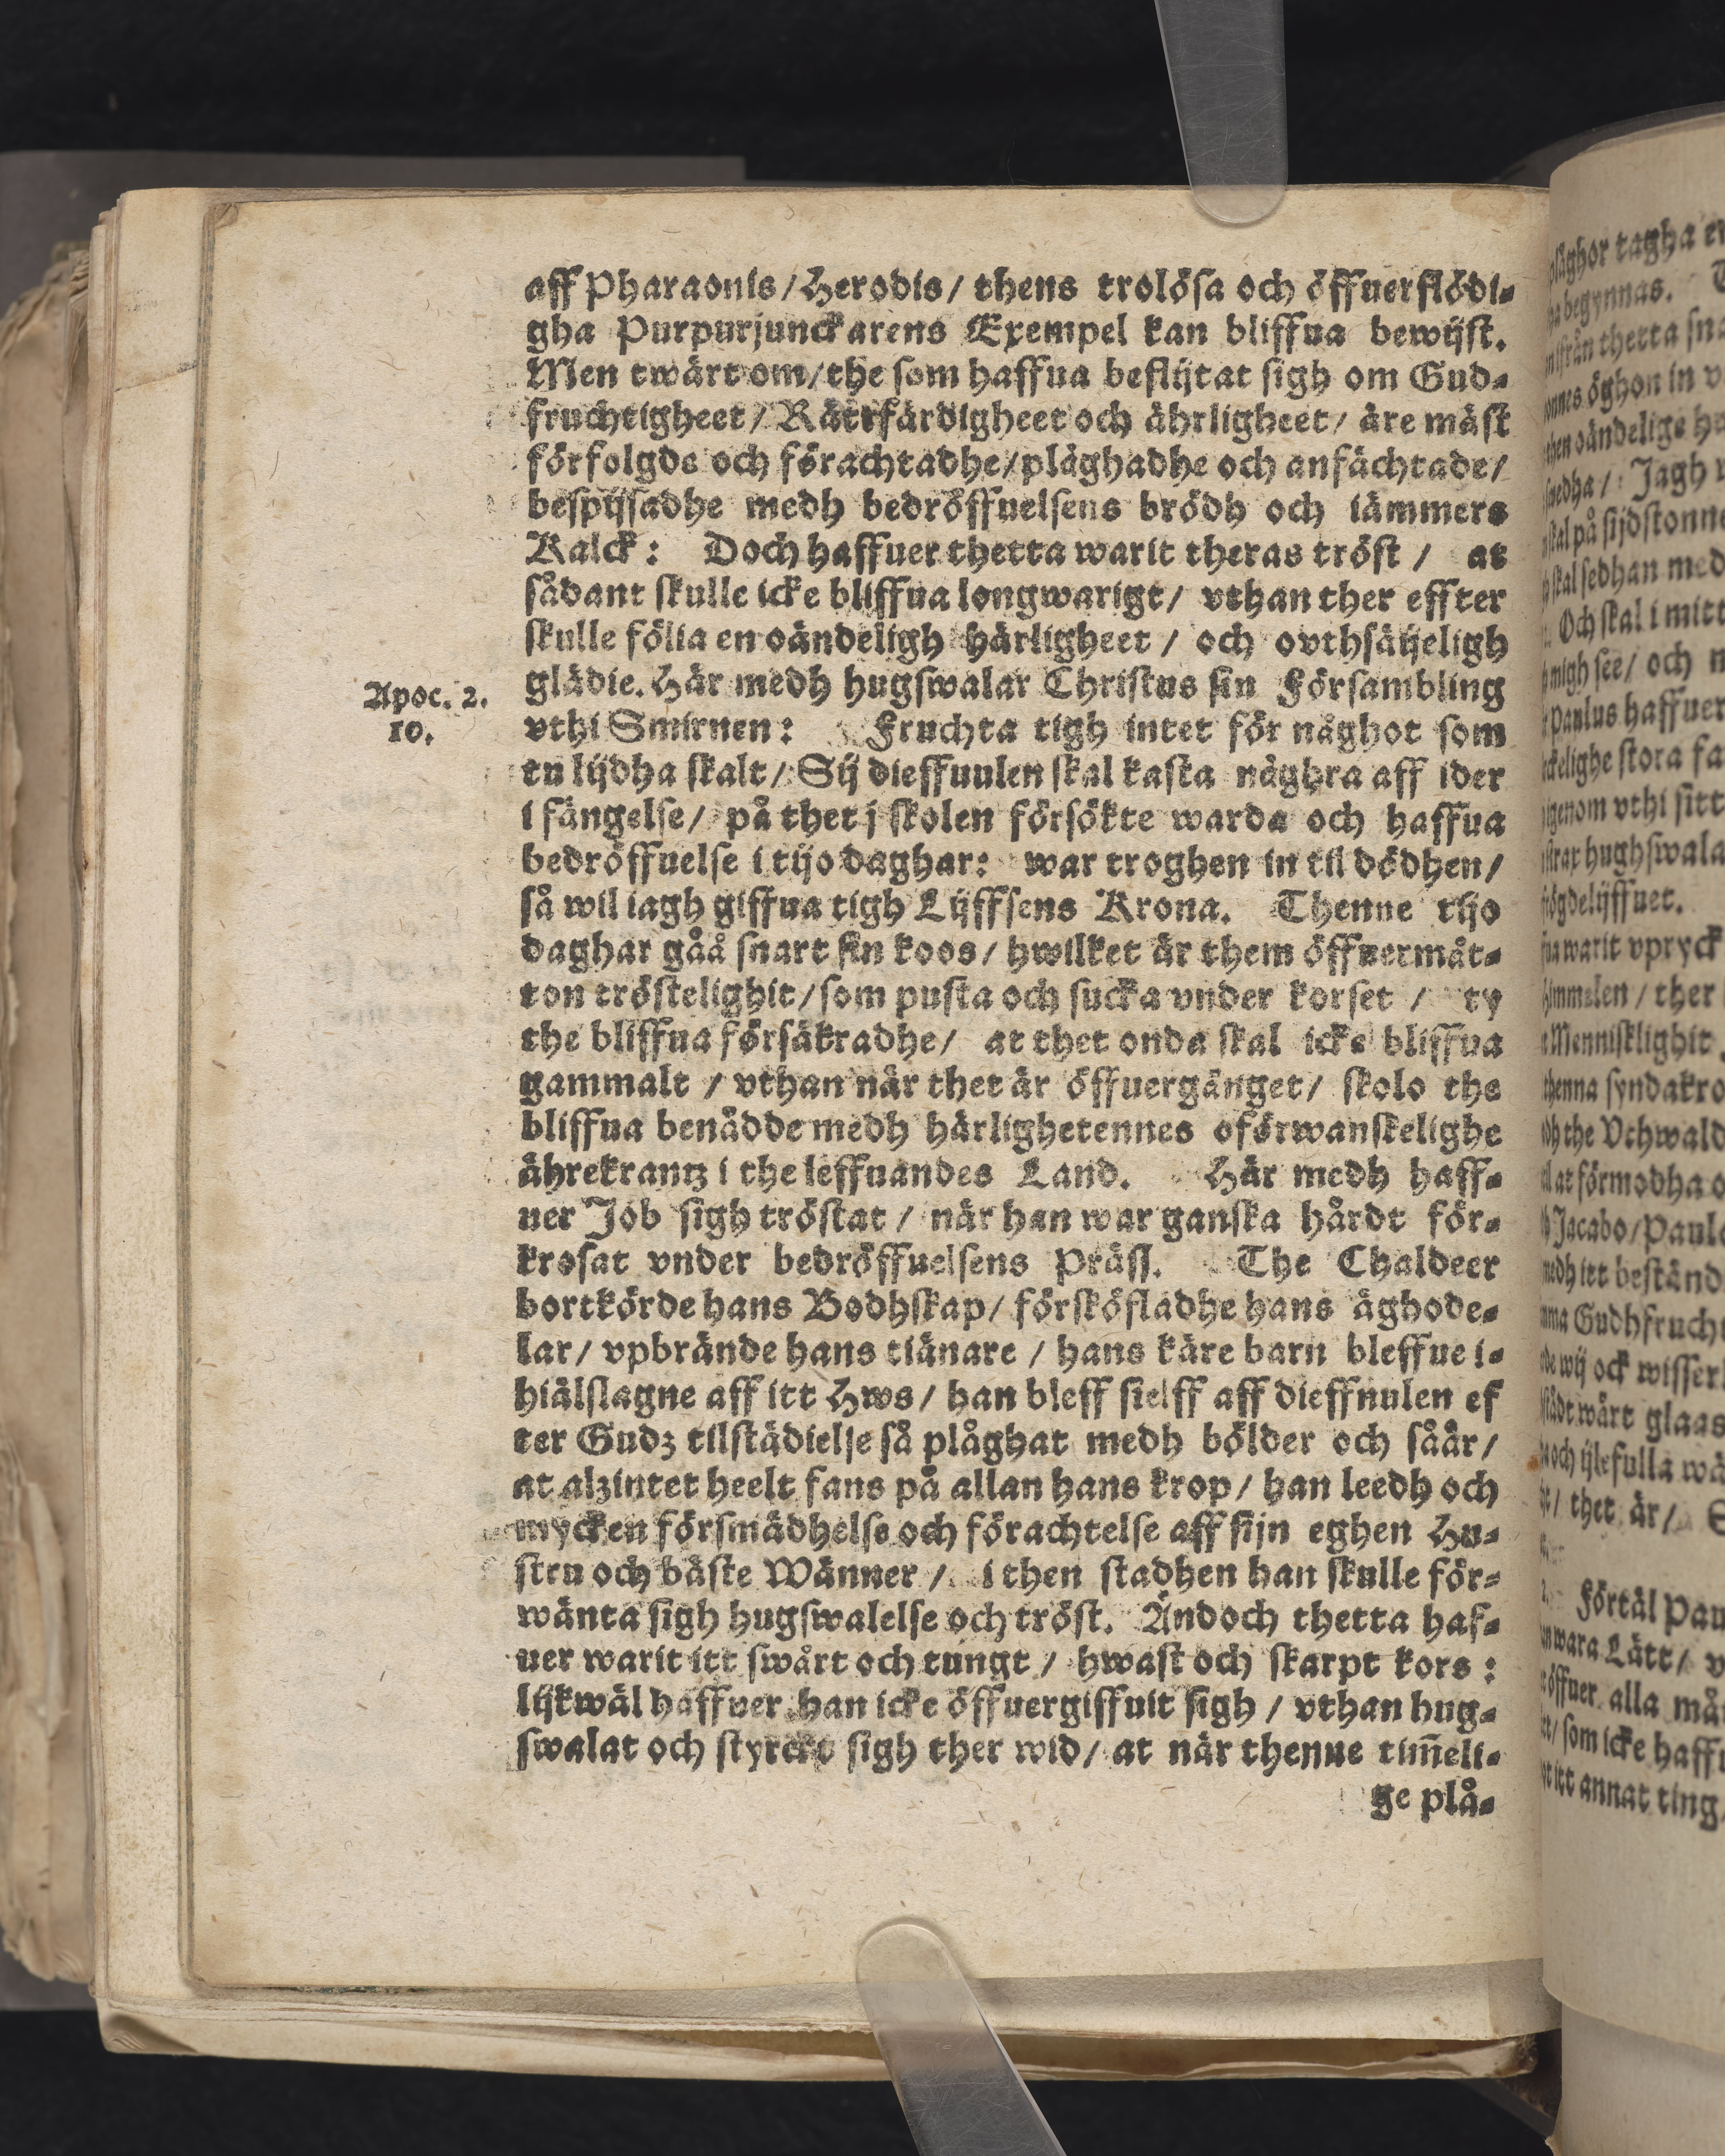 aff Pharaonis/Herodis/ thens trolösa och öffuerflödi-
gha Purpurjunckarens Exempel kan bliffua bewijst.
Men twärt om/the som haffua beflijtat sigh om Gud-
fruchtigheet/ Rättfärdigheet och ährligheet/ äre mäst
förfolgde och förachtadhe/plåghadhe och anfächtade/
bespijsadhe medh bedröffuelsens brödh och iämmers
Kalck: Doch haffuer thetta warit theras tröst / at
sådant skulle icke bliffua longwarigt/ vthan ther effter
skulle fölia en oändeligh härligheet / och ovthsäijeligh
glädie. Här medh hugswalar Christus sin Försambling
Apoc. 2.
10.
vthi Smirnen: Fruchta tigh intet för någhot som
tu lijdha skalt/ Sij dieffuulen skal kasta någhra aff ider
i fängelse/ på thet j skolen försökte warda och haffua
bedröffuelse i tijo daghar: war troghen in til dödhen/
så wil iagh giffua tigh Lijffsens Krona. Thenne tijo
daghar gåå snart sin koos/ hwilket är them öffuermåt-
ton tröstelighit/som pusta och sucka vnder korset / ty
the bliffua försäkradhe/ at thet onda skal icke bliffua
gammalt / vthan när thet är öffuergånget/ skolo the
bliffua benådde medh härlighetennes oförwanskelighe
ährekrantz i the leffuandes Land. Här medh haff-
uer Job sigh tröstat / när han war ganska hårdt för-
krosat vnder bedröffuelsens Präss. The Chaldeer
bortkörde hans Bodhskap/ försköfladhe hans äghode-
lar/ vpbrände hans tiänare / hans käre barn bleffue i-
hiälslagne aff itt Hws/ han bleff sielff aff dieffnulen ef
ter Gudz tilstädielse så plåghat medh bölder och såår/
at alzintet heelt fans på allan hans krop/ han leedh och
mycken försmädhelse och förachtelse aff sijn eghen Hu-
stru och bäste Wänner / i then stadhen han skulle för-
wänta sigh hugswalelse och tröst. Ändoch thetta haf-
uer warit itt swårt och tungt / hwast och skarpt kors:
lijkwäl haffver han icke öffuergiffuit sigh / vthan hug-
swalat och styrckt sigh ther wid/ at när thenne tim̃eli-
ge plå-